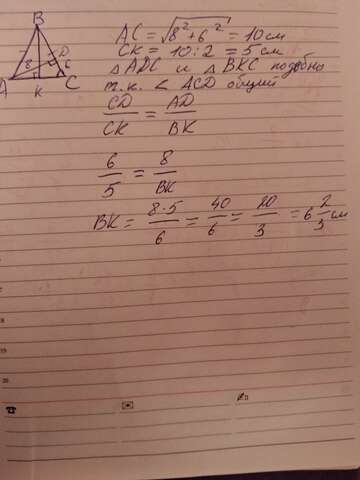 B
8
D
6
A
K
C
AC = √8² + 6² = 10 см
CK = 10 : 2 = 5 см
△ ADC и △ BKC подобны
т.к. < ACD общий
CD/CK = AD/BK
6/5 = 8/BK
BK = 8·5/6 = 40/6 = 20/3 = 6 2/3 см
19
20